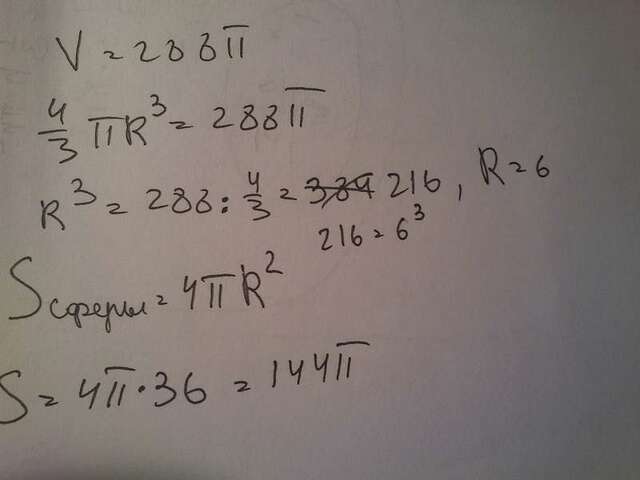 V = 288π
4/3 πR³ = 288π
R³ = 288 : 4/3 = 384 216, R = 6
216 = 6³
Sсферы = 4πR²
S = 4π · 36 = 144π